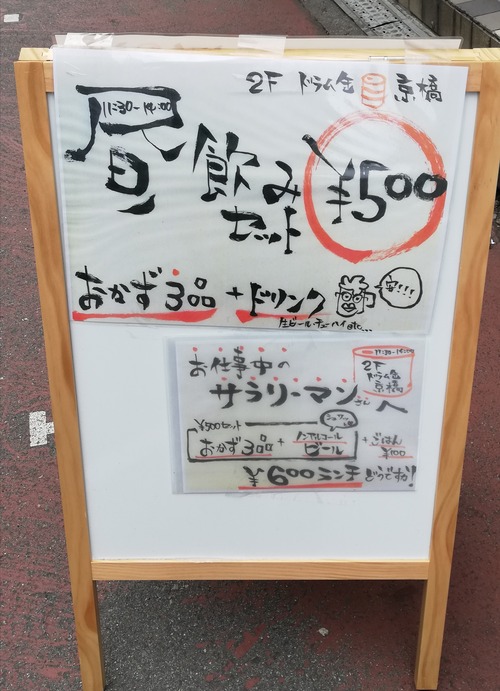 2F ドラム缶 京橋
11:30-14:00
昼飲み
セット
¥500
おかず3品+ドリンク
安!!!
生ビール・チューハイetc...
11:30-14:00
2F
ドラム缶
京橋
お仕事中の
サラリーマンさんへ
¥500セット
おかず3品+ノンアルコール
ビール
+ごはん
¥100
¥600ランチどうですか!